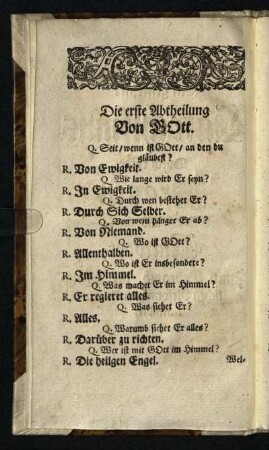 Die erste Abtheilung
Von GOtt.
Q. Seit/wenn ist GOtt/ an den du
gläubest?
R. Von Ewigkeit.
Q. Wie lange wird Er seyn?
R. In Ewigkeit.
Q. Durch wen bestehet Er?
R. Durch Sich Selber.
Q. Von wem hänget Er ab?
R. Von Niemand.
Q. Wo ist GOtt?
R. Allenthalben.
Q. Wo ist Er insbesondere?
R. Im Himmel.
Q. Was machet Er im Himmel?
R. Er regieret alles.
Q. Was siehet Er?
R. Alles.
Q. Warumb siehet Er alles?
R. Darüber zu richten.
Q. Wer ist mit GOtt im Himmel?
R. Die heilgen Engel. Wel-